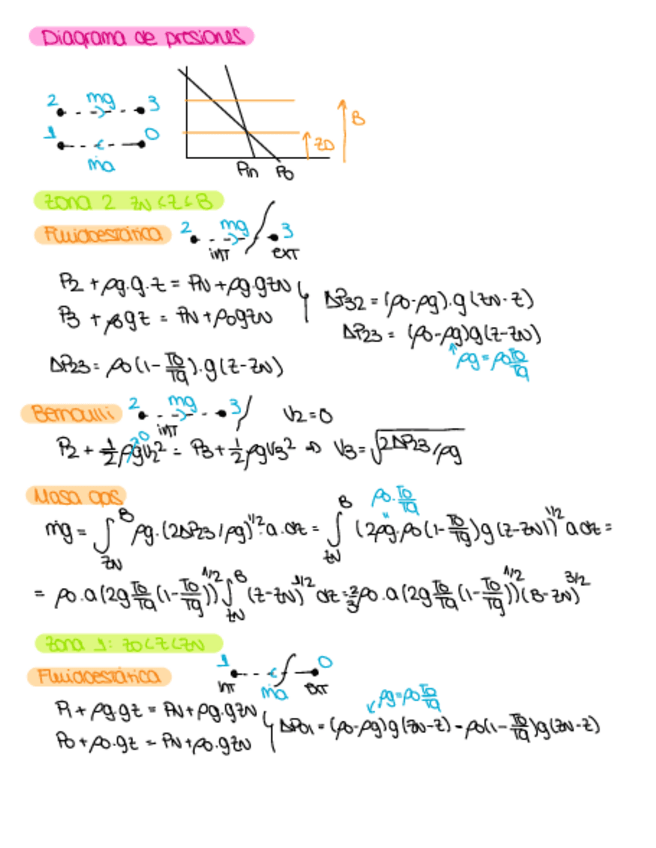 Diagrama de presiones
2 mg 3
1 0
ma
B
ZD
Pin Po
Zona 2 ZN<Z<B
Fluidoestática 2 mg 3
INT EXT
P2 + ρg.g.z = PN + ρg.gZN
P3 + ρ0gz = PN + ρ0gZN
ΔP32 = (ρ0-ρg).g(ZN-Z)
ΔP23 = (ρ0-ρg)g(Z-ZN)
ρg = ρ0 T0/Tg
ΔP23 = ρ0(1-T0/Tg).g(Z-ZN)
Bernoulli 2 mg 3 V2=0
INT
P2 + 1/2 ρgV2² = P3 + 1/2 ρgV3² ⇒ V3 = √2ΔP23/ρg
Masa gas
ρ0.T0/Tg
mg = ∫ZN^B ρg.(2ΔP23/ρg)^1/2.a.dz = ∫ZN^B (2ρg.ρ0(1-T0/Tg)g(Z-ZN))^1/2 a dz =
= ρ0.a(2g T0/Tg(1-T0/Tg))^1/2 ∫ZN^B (Z-ZN)^1/2 dz = 2/3 ρ0.a(2g T0/Tg(1-T0/Tg))^1/2 (B-ZN)^3/2
Zona 1: ZD<Z<ZN
Fluidoestática 1 0
INT ma EXT
ρg=ρ0 T0/Tg
P1 + ρg.gz = PN + ρg.gZN
P0 + ρ0.gz = PN + ρ0.gZN
ΔP01 = (ρ0-ρg)g(ZN-Z) - ρ0(1-T0/Tg)g(ZN-Z)